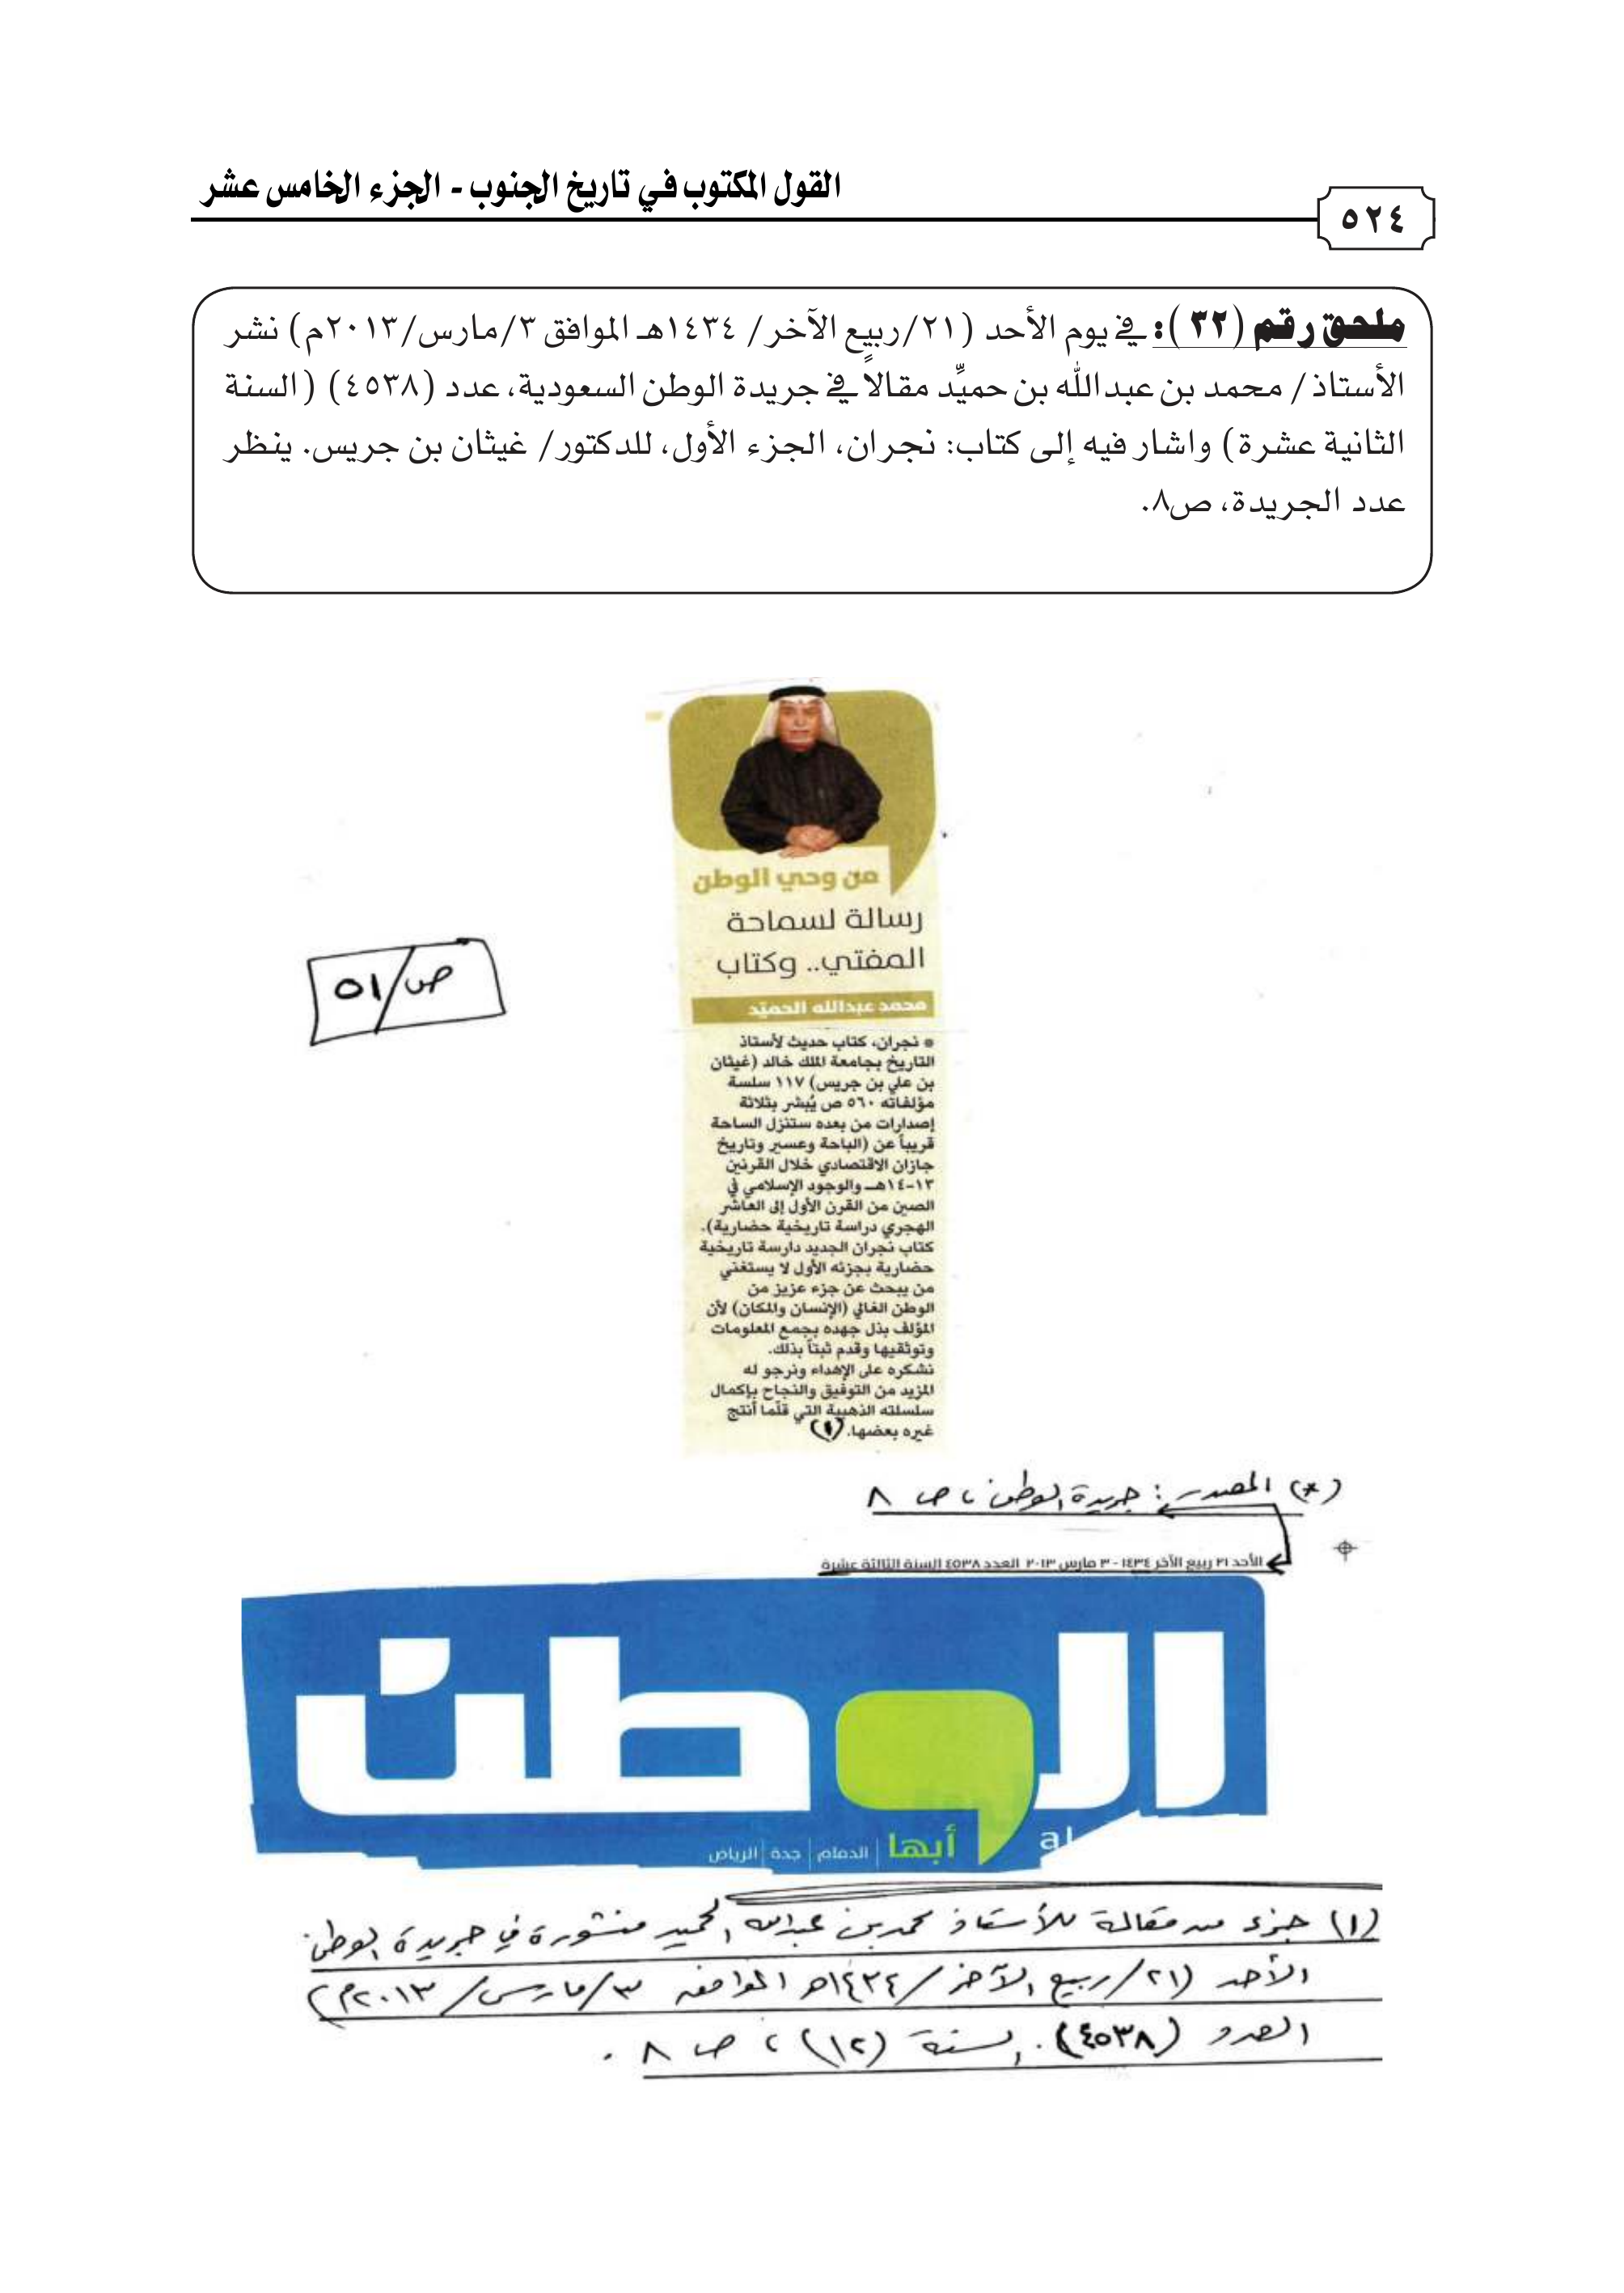 القول المكتوب في تاريخ الجنوب - الجزء الخامس عشر
٥٢٤
ملحق رقم (٣٢): في يوم الأحد (٢١/ربيع الآخر/ ١٤٣٤هـ الموافق ٣/مارس/٢٠١٣م) نشر
الأستاذ/ محمد بن عبدالله بن حميِّد مقالاً في جريدة الوطن السعودية، عدد (٤٥٣٨) (السنة
الثانية عشرة) واشار فيه إلى كتاب: نجران، الجزء الأول، للدكتور/ غيثان بن جريس. ينظر
عدد الجريدة، ص٨.
من وحي الوطن
رسالة لسماحة
المفتي.. وكتاب
محمد عبدالله الحميّد
ص/٥١
* نجران، كتاب حديث لأستاذ
التاريخ بجامعة الملك خالد (غيثان
بن علي بن جريس) ١١٧ سلسة
مؤلفاته ٥٦٠ ص يُبشر بثلاثة
إصدارات من بعده ستنزل الساحة
قريباً عن (الباحة وعسير وتاريخ
جازان الاقتصادي خلال القرنين
١٣-١٤هـ والوجود الإسلامي في
الصين من القرن الأول إلى العاشر
الهجري دراسة تاريخية حضارية).
كتاب نجران الجديد دارسة تاريخية
حضارية بجزئه الأول لا يستغني
من يبحث عن جزء عزيز من
الوطن الغالي (الإنسان والمكان) لأن
المؤلف بذل جهده بجمع المعلومات
وتوثقيها وقدم ثبتاً بذلك.
نشكره على الإهداء ونرجو له
المزيد من التوفيق والنجاح بإكمال
سلسلته الذهبية التي قلّما أنتج
غيره بعضها. (١)
(*) المصدر : جريدة الوطن ، ص ٨
الأحد ٢١ ربيع الآخر ١٤٣٤ - ٣ مارس ٢٠١٣ العدد ٤٥٣٨ السنة الثالثة عشرة
الوطن
al
أبها | الدمام | جدة | الرياض
(١) جزء من مقالة للأستاذ محمد بن عبدالله الحميد منشورة في جريدة الوطن
الأحد (٢١/ربيع الآخر/١٤٣٤هـ الموافق ٣/مارس/٢٠١٣م)
العدد (٤٥٣٨). السنة (١٢) ، ص ٨ .